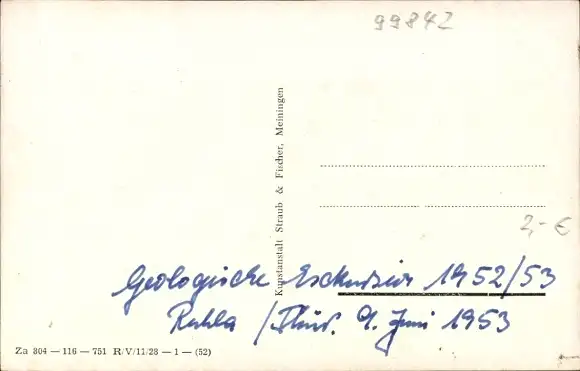 99842
Kunstanstalt Straub & Fischer, Meiningen
2,- €
Geologische Exkursion 1952/53
Ruhla /Thür. 9. Juni 1953
Za 304 — 116 — 751 R/V/11/28 — 1 — (52)